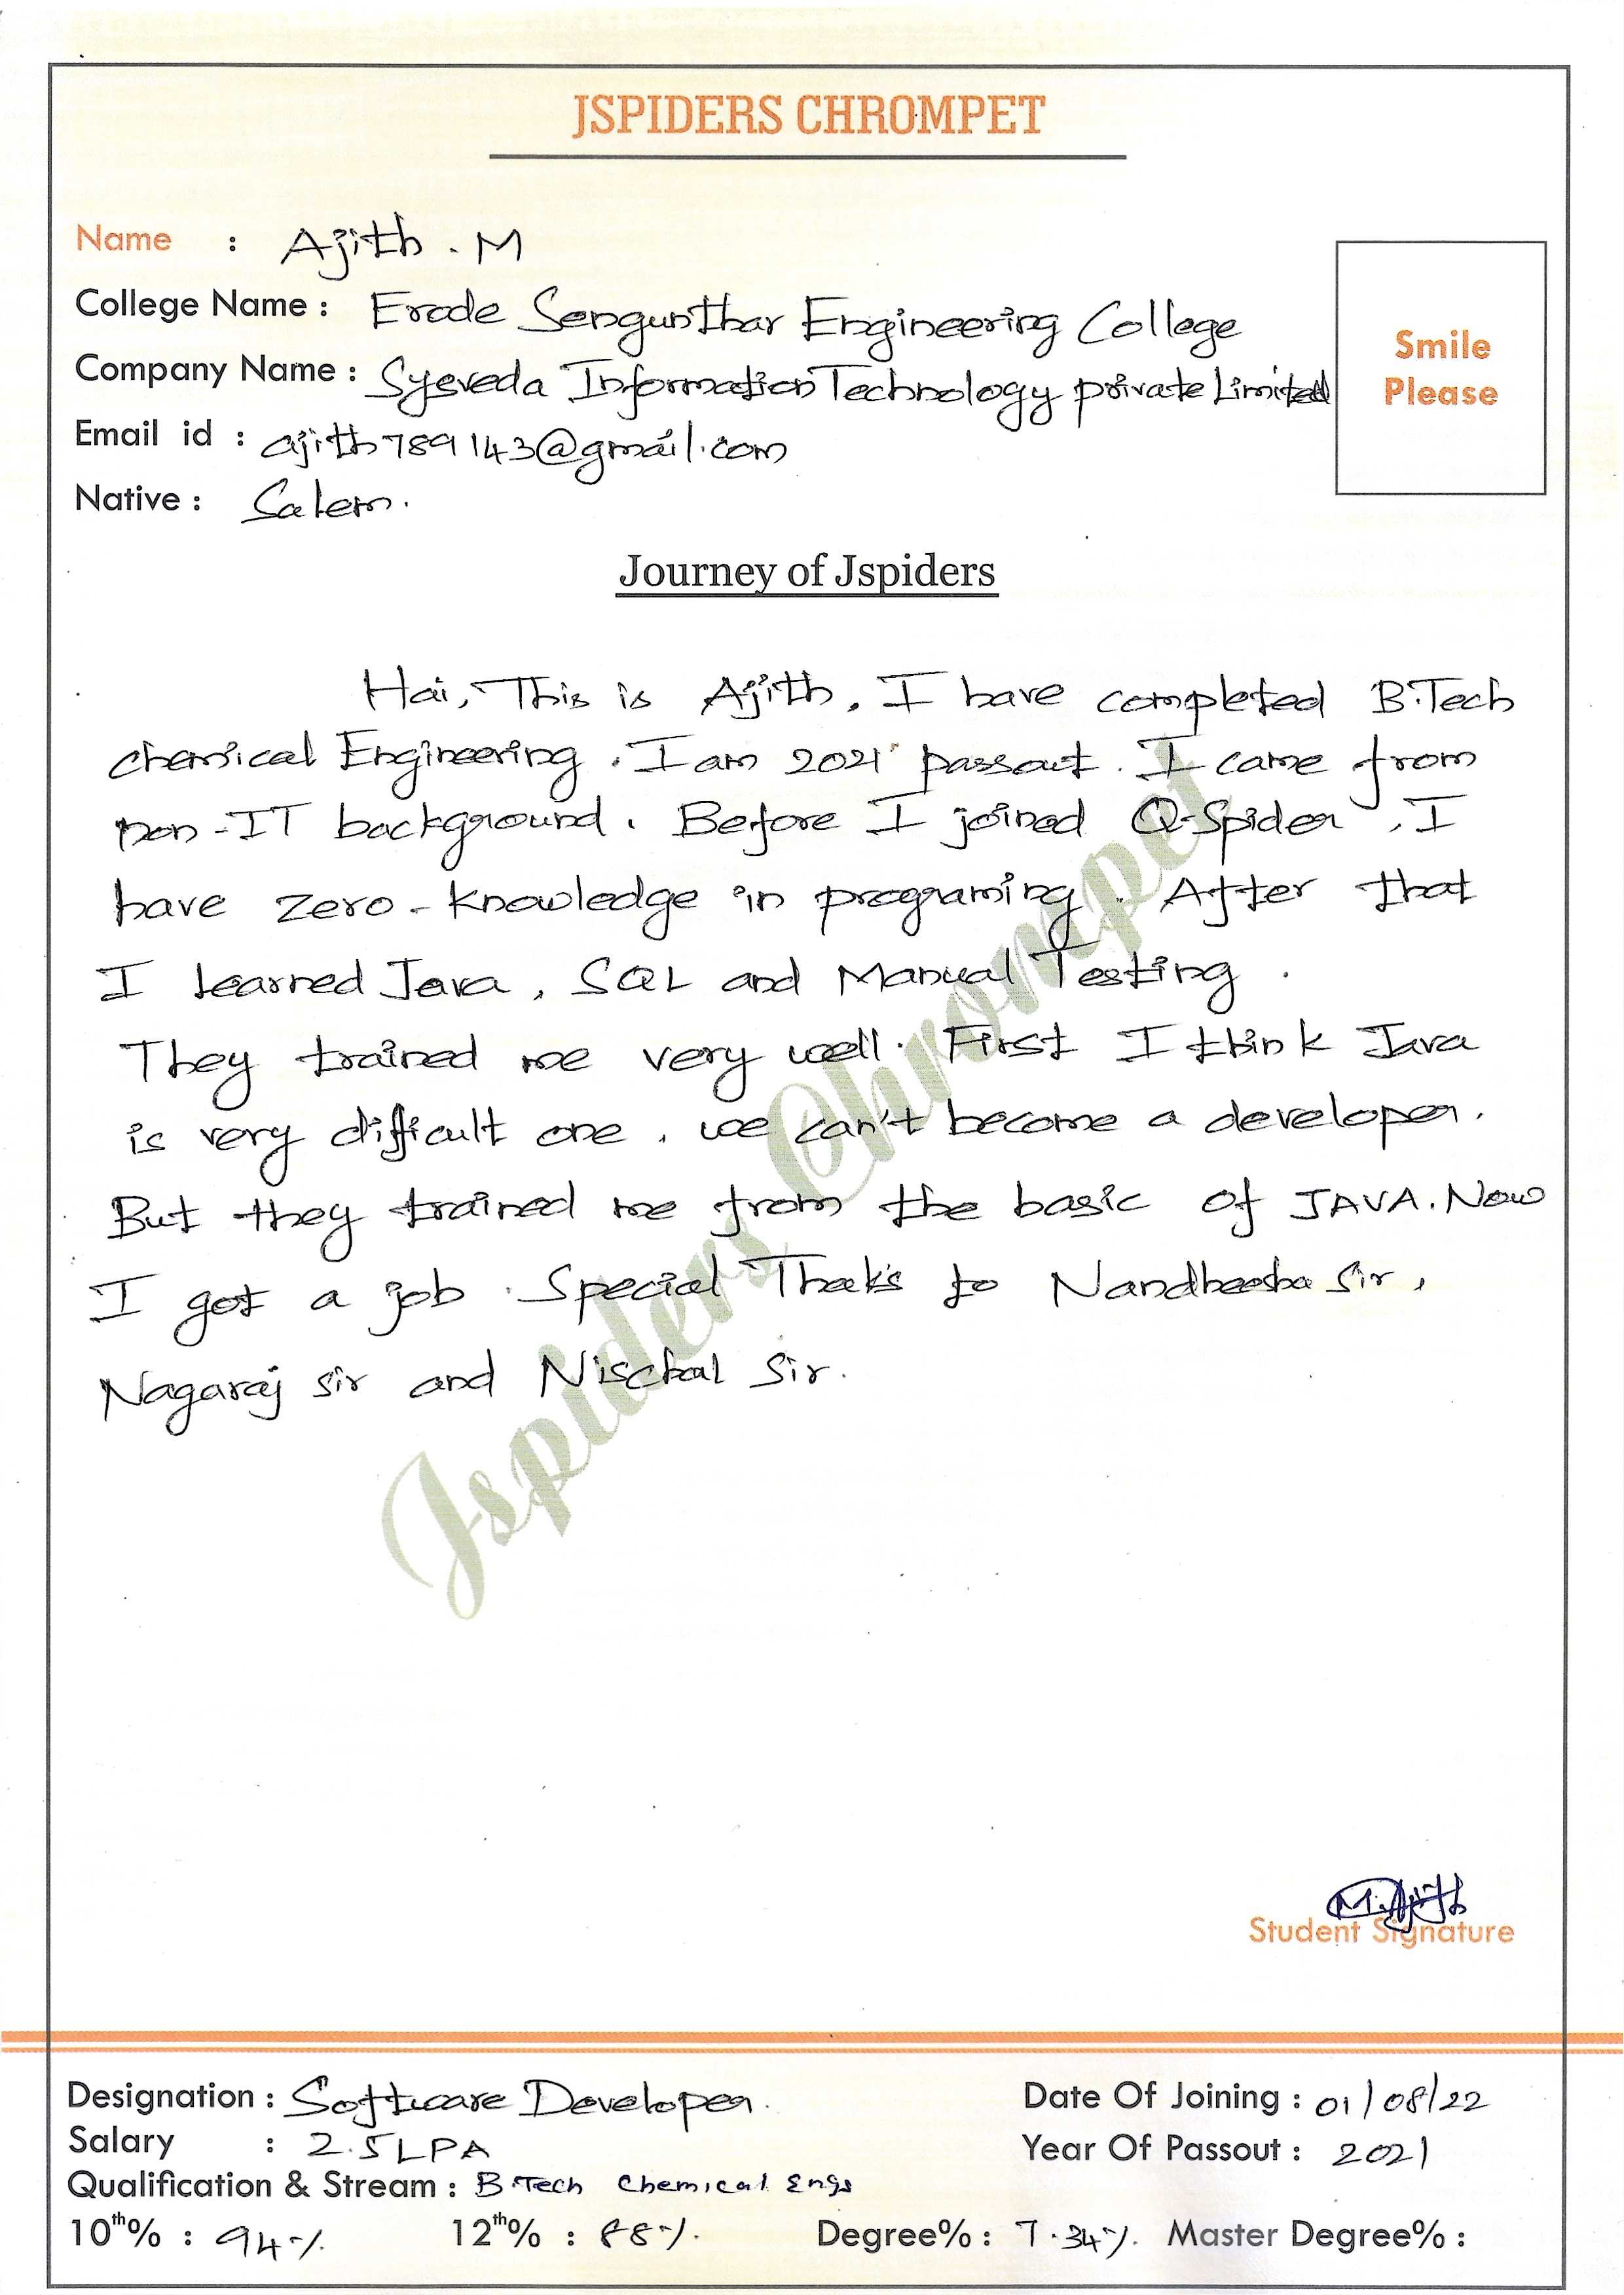 JSPIDERS CHROMPET
Name : Ajith . M
College Name : Erode Sengunthar Engineering College
Company Name : Syeveda Information Technology private Limited
Email id : ajith789143@gmail.com
Native : Salem.
Smile
Please
Journey of Jspiders
Hai, This is Ajith, I have completed B.Tech
chemical Engineering. I am 2021 passout. I came from
non-IT background. Before I joined Q-Spider, I
have zero-knowledge in programing. After that
I learned Java, SQL and Manual Testing.
They trained me very well. First I think Java
is very difficult one, we can't become a developer.
But they trained me from the basic of JAVA. Now
I got a job. Special Thaks to Nandheesha Sir,
Nagaraj sir and Nischal Sir.
Jspiders Chrompet
M.Ajith
Student Signature
Designation : Software Developer. Date Of Joining : 01/08/22
Salary : 2.5 LPA Year Of Passout : 2021
Qualification & Stream : B.Tech Chemical Engg
10th% : 94% 12th% : 88%. Degree% : 7.34%. Master Degree% :